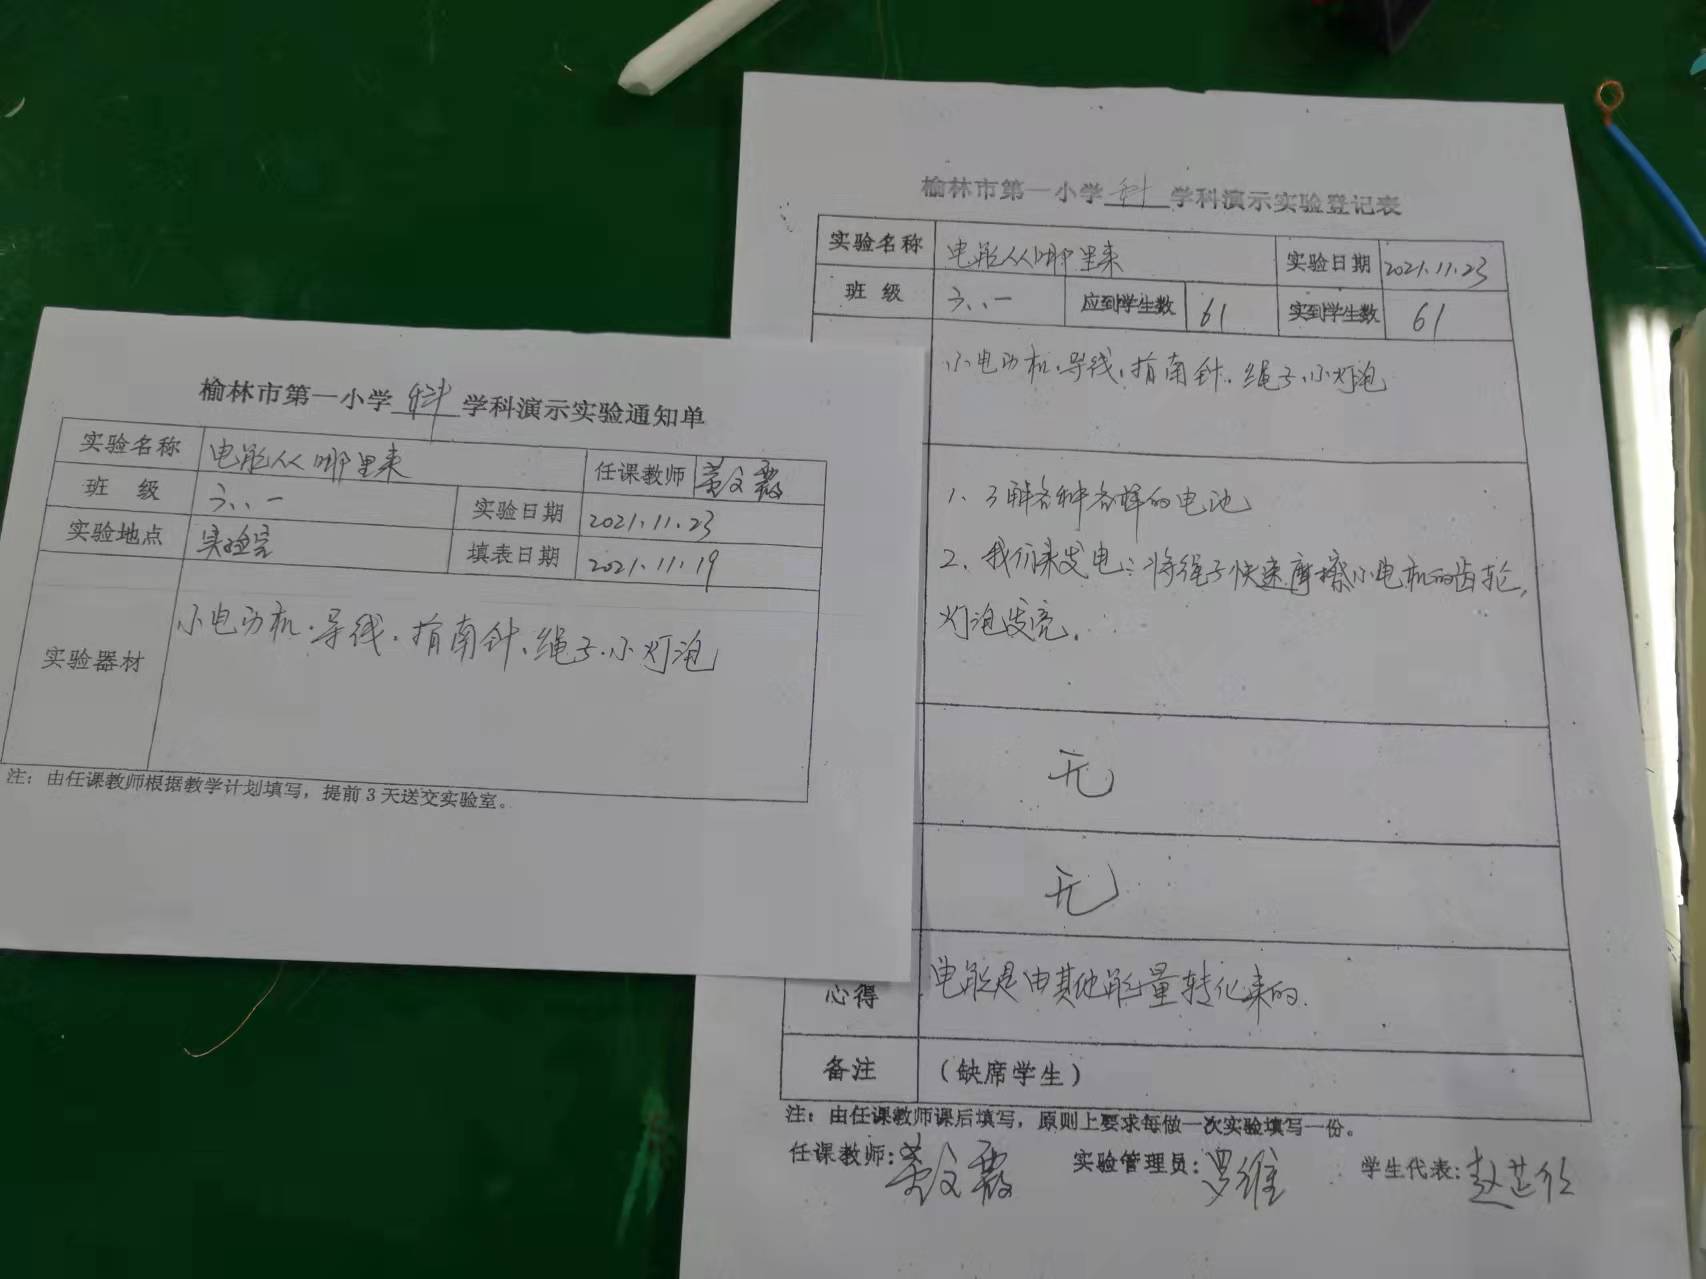 榆林市第一小学 科 学科演示实验通知单
实验名称 电能从哪里来 任课教师
班 级 六、一 实验日期 2021.11.23
实验地点 实验室 填表日期 2021.11.19
实验器材 小电动机、导线、指南针、绳子、小灯泡
注：由任课教师根据教学计划填写，提前3天送交实验室。
榆林市第一小学 科 学科演示实验登记表
实验名称 电能从哪里来 实验日期 2021.11.23
班 级 六、一 应到学生数 61 实到学生数 61
小电动机、导线、指南针、绳子、小灯泡
1、了解各种各样的电池
2、我们来发电：将绳子快速摩擦小电机的齿轮，
灯泡发亮。
无
无
心得 电能是由其他能量转化来的.
备注 （缺席学生）
注：由任课教师课后填写，原则上要求每做一次实验填写一份。
任课教师: 实验管理员: 罗维 学生代表: